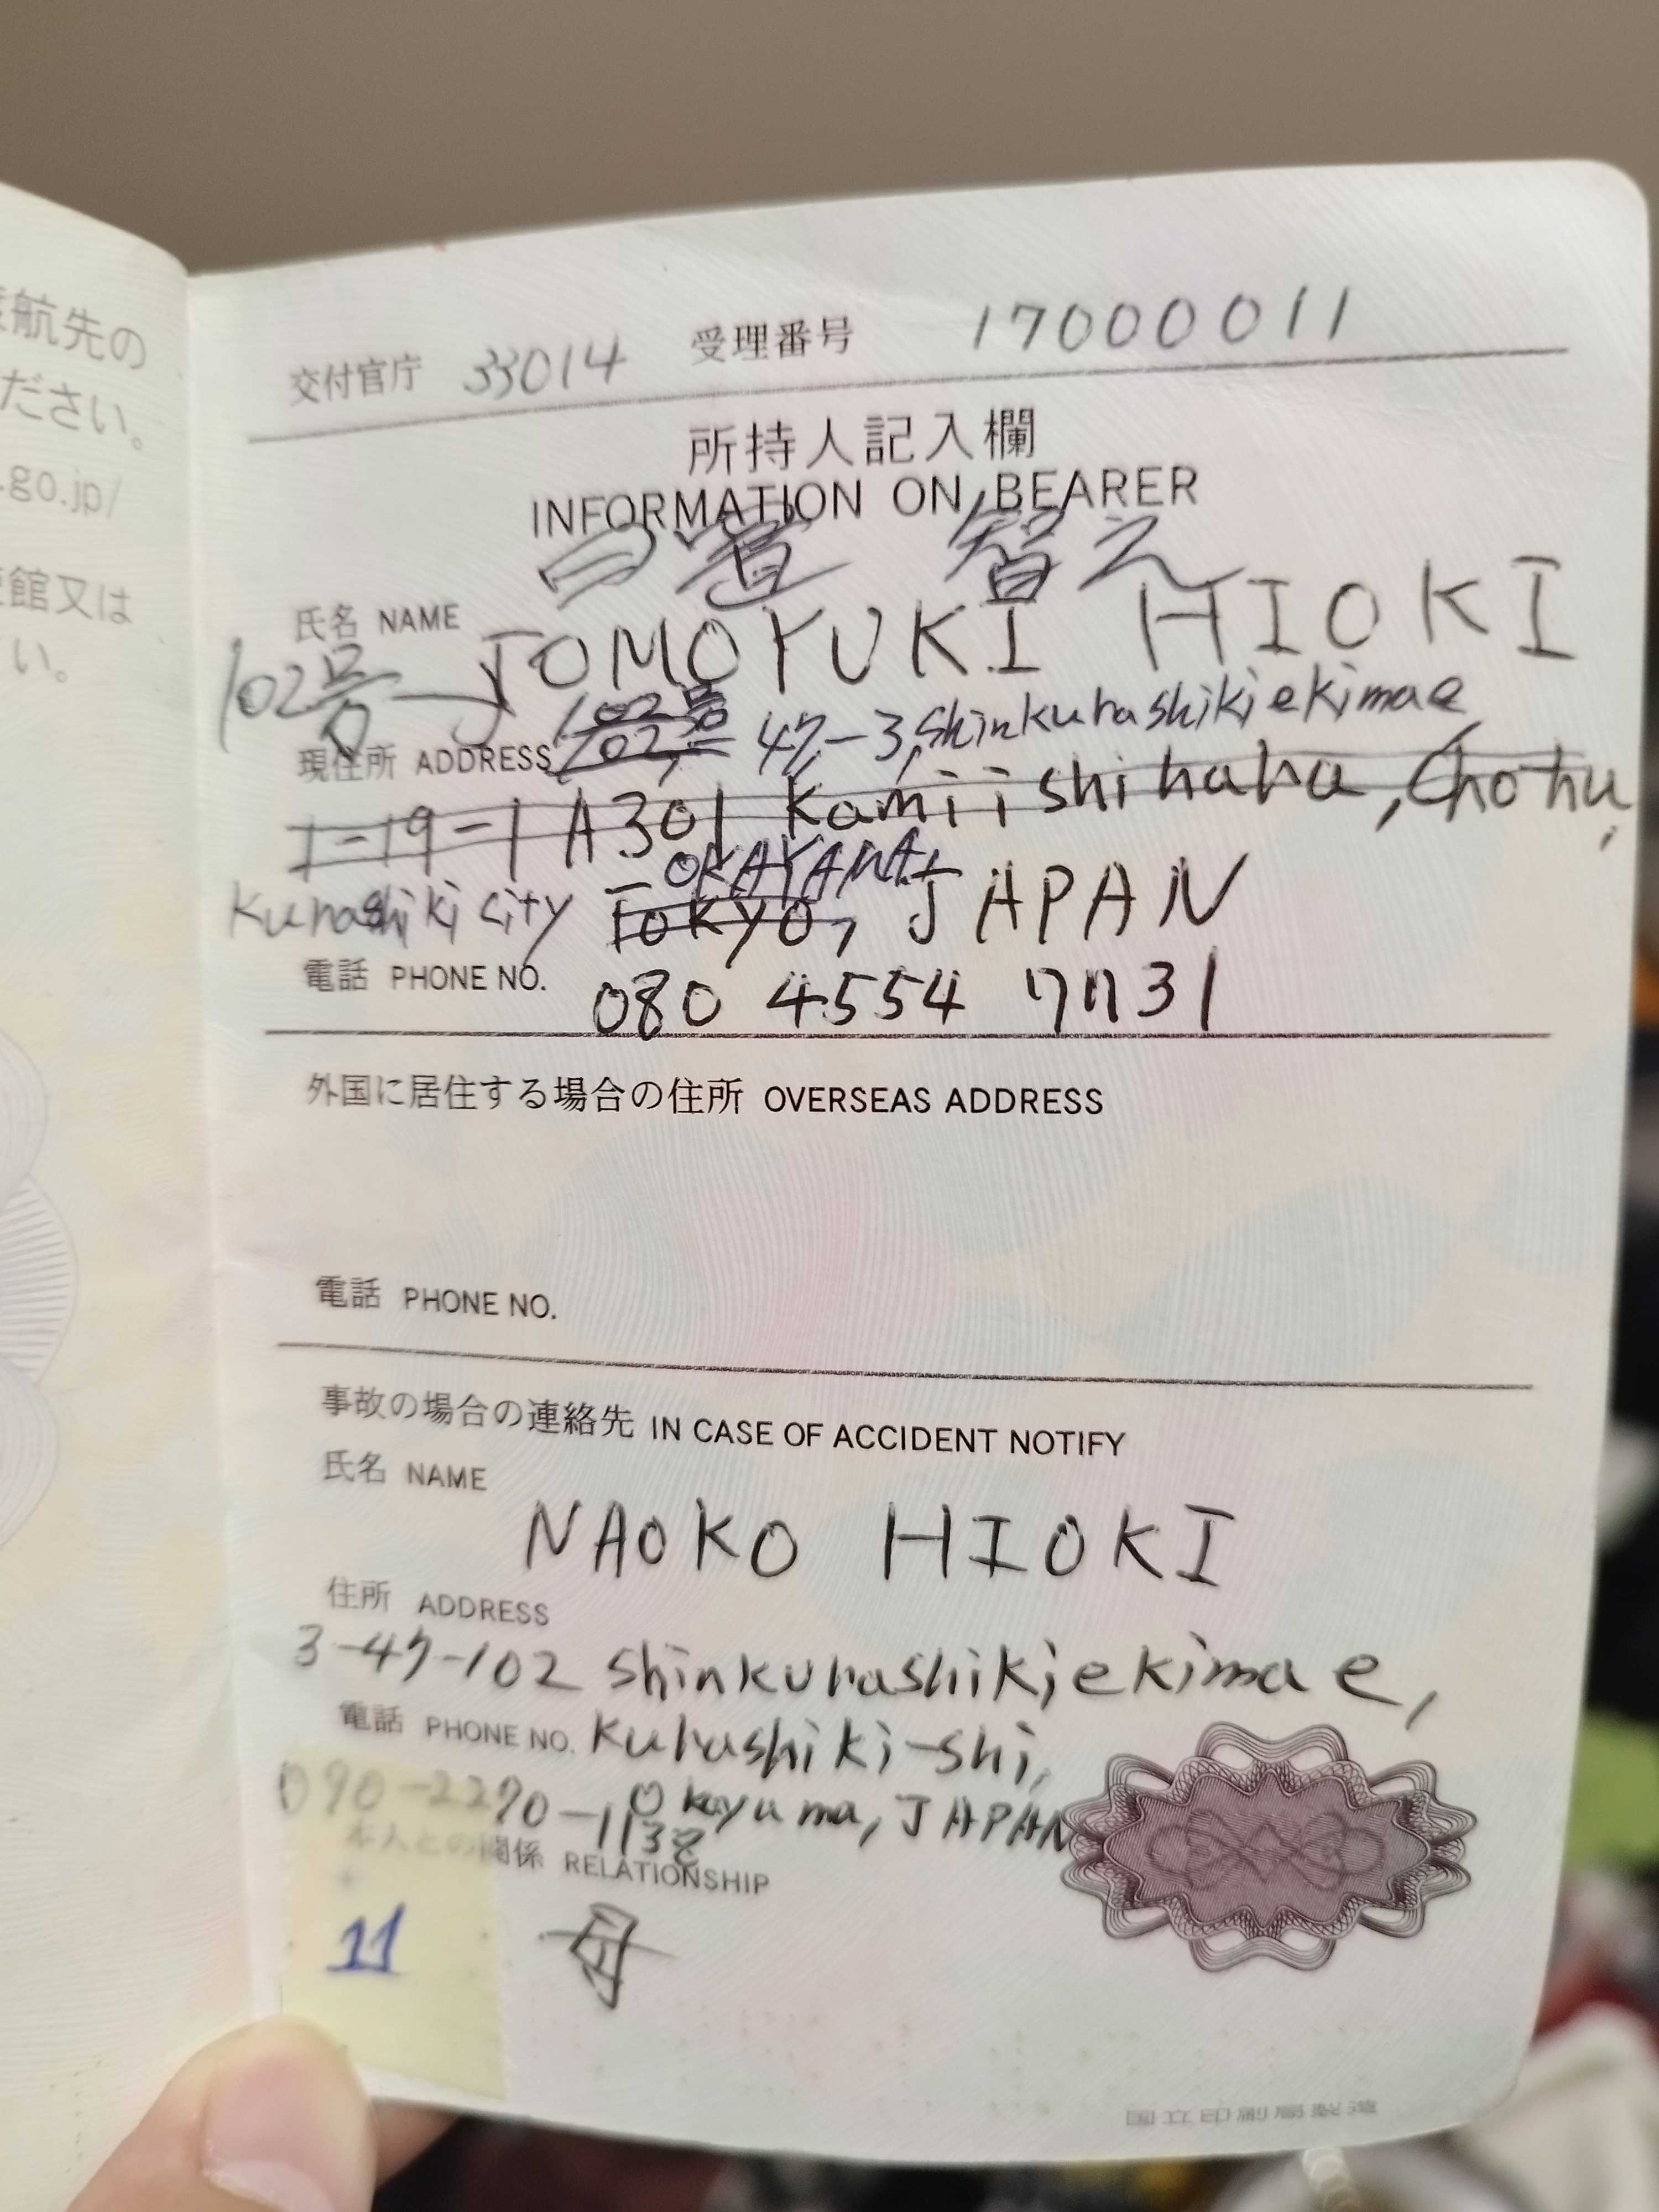 航先の
ださい。
.go.jp/
館又は
い。
交付官庁 33014 受理番号 17000011
所持人記入欄
INFORMATION ON BEARER
日置 智之
氏名 NAME TOMOYUKI HIOKI
102号
現住所 ADDRESS 102号 47-3, Shinkurashikiekimae
1-19-1 A301 Kamiishihara, Chofu,
OKAYAMA
Kurashiki city TOKYO, JAPAN
電話 PHONE NO. 080 4554 7731
外国に居住する場合の住所 OVERSEAS ADDRESS
電話 PHONE NO.
事故の場合の連絡先 IN CASE OF ACCIDENT NOTIFY
氏名 NAME
NAOKO HIOKI
住所 ADDRESS
3-47-102 Shinkurashikiekimae,
電話 PHONE NO. Kurashiki-shi,
090-2270-1138 Okayama, JAPAN
本人との関係 RELATIONSHIP
11 母
国立印刷局製造